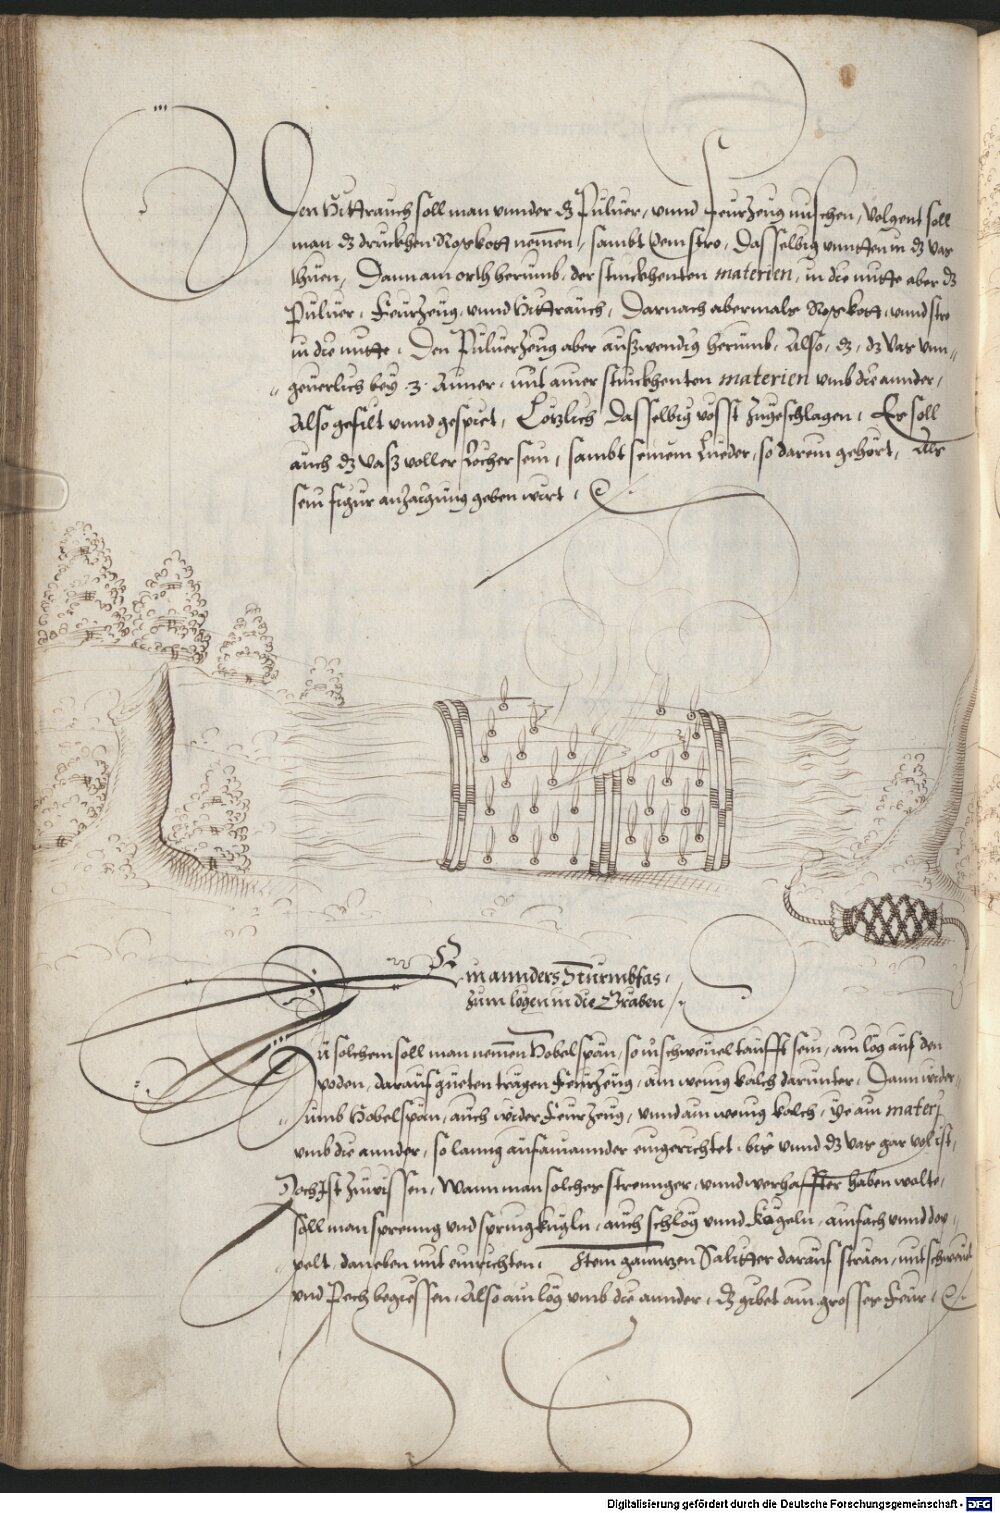 Den Hittrauch soll man vnnder dz Puluer, vnnd Feurzeug mischen, volgent soll
man dz druckhen Rosskott nemmen, sambt dem stro, Dasselbig vnntten in dz vas
thuen, Dann am orth herumb, der stinckhenten materien, in die mitte aber dz
Puluer, Feurzeug, vnnd Hittrauch, Darnach abermals Rosskott, vnnd stro
in die mitte, Den Puluerzeug aber außwendig herumb, Also, dz, dz vas vnn„
„ geuerlich bey .3. Aimer, mit ainer stinckhenten materien vmb die annder,
Also gefilt vnnd gespiet, Lötzlich dasselbig vösst zugeschlagen, Es soll
auch dz vasz voller Löcher sein, sambt seinem Lueder, so darein gehört, Als
sein figur anzaigung geben wirt,
Ein annders Sturmbfas,
zum lögen in die Gräben
Zu solchem soll man nemmen Hobelspän, so in schweuel taufft sein, ain lög auf den
poden, darauf gueten trägen Feurzeug, ain wenig kalch darunter, Dann wider„
„ umb Hobelspän, auch wider Feurzeug, vnnd ain wenig kalch, ye ain materj
vmb die annder, so lanng aufainannder eingerichtet, bis vnnd dz vas gar vol ist,
Doch Ist zuwissen, Wann man solches strennger, vnnd werhaffter haben wolte,
soll man spreng vnd springkugln, auch schlög vnnd Kögeln, ainfach vnnd dop„
pelt, daneben mit einrichten, Item gannzen Salitter darauf sträen, mit schweuel
vnd Pech begiessen, Also ain lög vmb die annder, dz gibet ain grosses Feur,
Digitalisierung gefördert durch die Deutsche Forschungsgemeinschaft - DFG